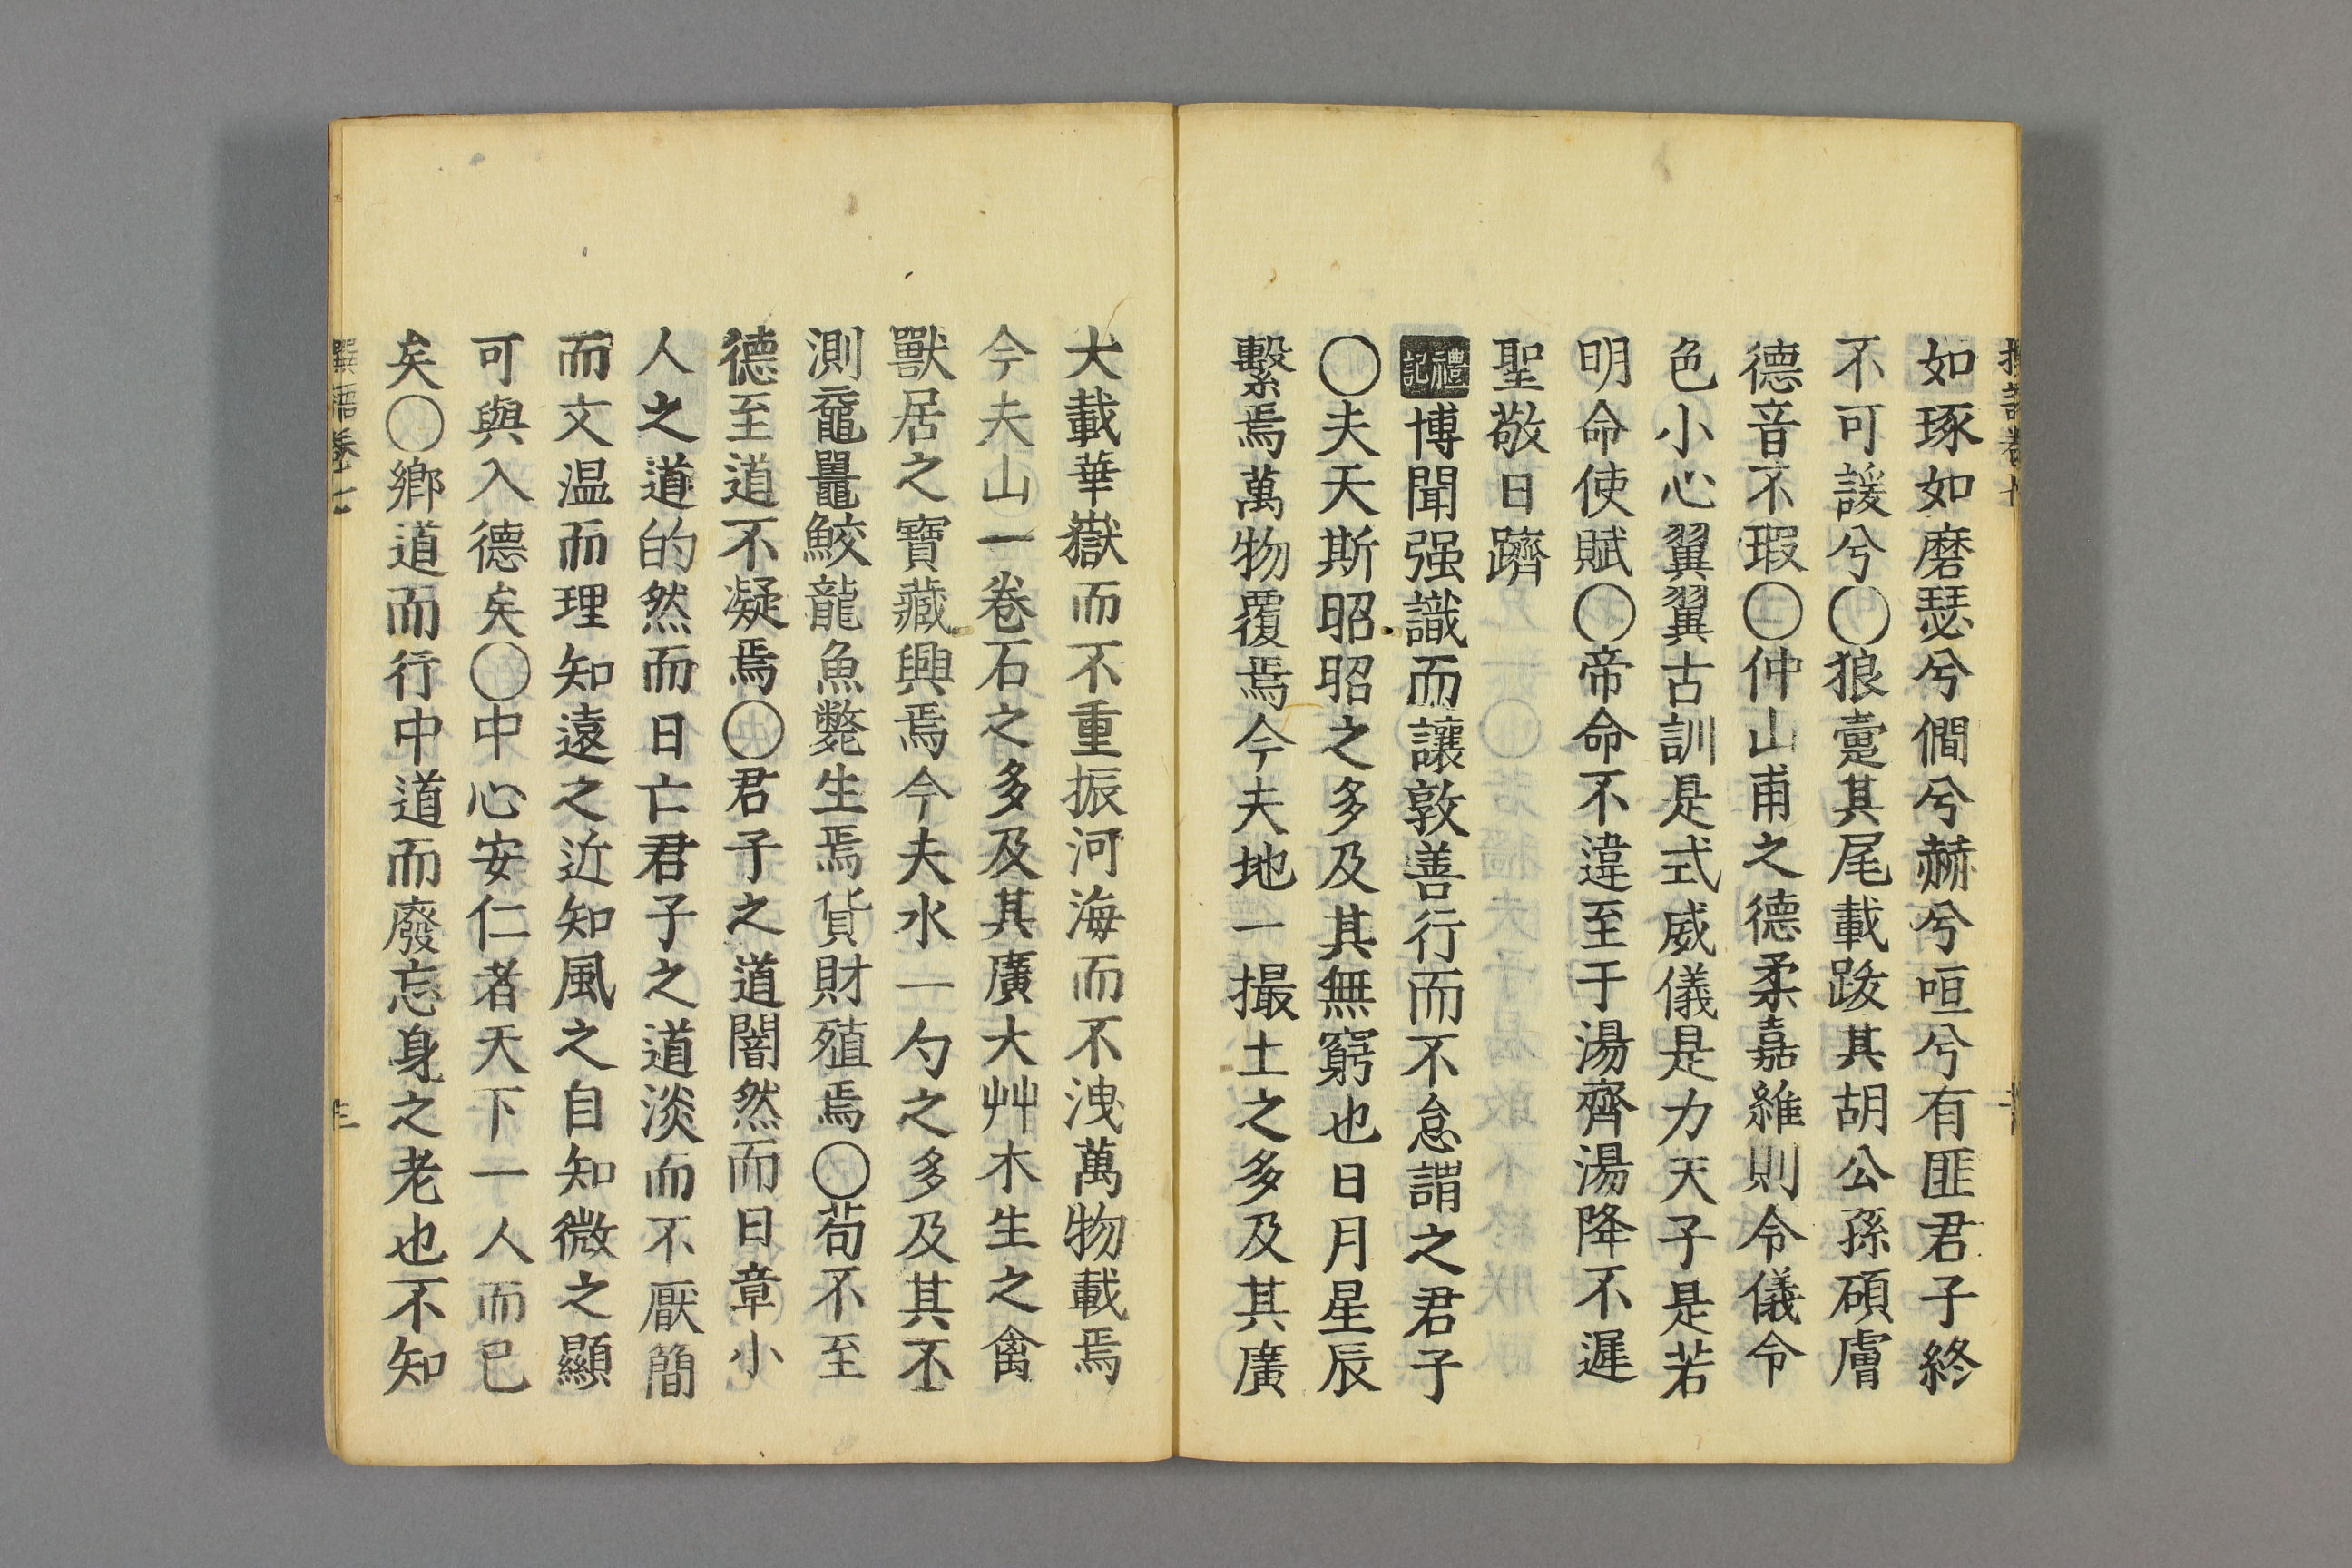 如琢如磨瑟兮僩兮赫兮兮咺兮有匪君子終
不可諼兮〇狼疐其尾載跋其胡公孫碩膚
德音不瑕〇仲山甫之德柔嘉維則令儀令
色小心翼翼古訓是式威儀是力天子是若
明命使賦〇帝命不違至于湯齊湯降不遲
聖敬日躋
禮記博聞强識而讓敦善行而不怠謂之君子
〇夫天斯昭昭之多及其無窮也日月星辰
繫焉萬物覆焉今夫地一撮土之多及其廣
大載華嶽而不重振河海而不洩萬物載焉
今夫山一卷石之多及其廣大艸木生之禽
獸居之寶藏興焉今夫水一勺之多及其不
測黿鼉鮫龍魚鼈生焉貨財殖焉〇苟不至
德至道不凝焉〇君子之道闇然而日章小
人之道的然而日亡君子之道淡而不厭簡
而文温而理知遠之近知風之自知微之顯
可與入德矣〇中心安仁者天下一人而已
矣〇鄉道而行中道而廢忘身之老也不知